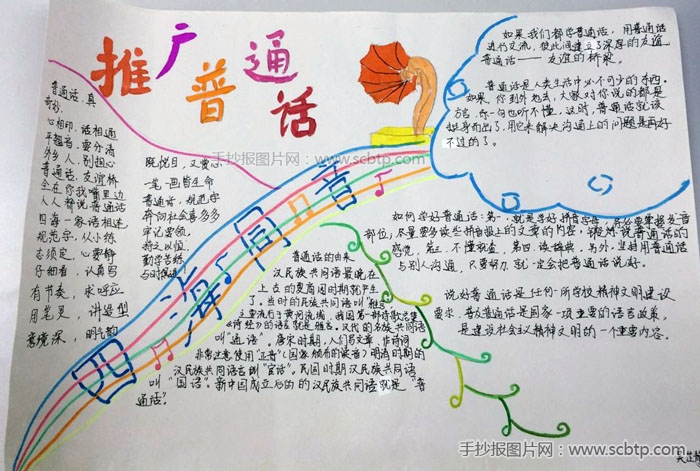 推广普通话
四海同音
普通话,真
奇妙,
心相印,话相通
平翘音,要分清
外乡人,别担心
普通话,友谊桥
全在你我嘴里边
人人都说普通话
四海一家话相连
规范字,从小练
去预定,心要静
仔细看,认真写
有节奏,求呼应
用笔灵
讲造型
意境深,明韵韵
既悦目,又赏心
一笔一画皆生命
普通话,规范字
奔向社会喜多多
牢记要领,
持之以恒,
勤学苦练
与时俱进!
手抄报图片网:www.scbtp.com
如果我们都学普通话,用普通话
进行交流,彼此间建立了深厚的友谊
普通话——友谊的桥梁。
普通话是人类生活中必不可少的东西。
如果,你到外地去,大家对你说的都是
方言,你一句也听不懂,这时,普通话就该
挺身而出了,用它来解决沟通上的问题是再好
不过的了。
如何学好普通话:第一,就是学好拼音字母,
部位,尽量要多读些拼音报上的文章的内容,
感觉,第三,不懂就查,第四,读辞典,另外,坚持用普通话
与别人沟通,只要努力,就一定会把普通话说好。
说好普通话是任何所学校精神文明建设
要求,普及普通话是国家一项重要的语言政策,
是建设社会主义精神文明的一个重要内容。
普通话的由来
汉民族共同语最晚在
上古的夏商周时期就产生
了,当时的民族共同语叫"雅言"
主要流行于黄河流域,我国第一部诗歌总集
《诗经》的语言就是雅言。汉代的名族共同语
叫"通语"。唐宋时期,人们写文章、作诗词
非常注意使用"正音"(国家颁布的读音)明清时期的
汉民族共同语言则"官话"。民国时期汉民族共同语
叫"国语"。新中国成立后的的汉民族共同语就是"普
通话"。
手抄报图片网:www.scbtp.com